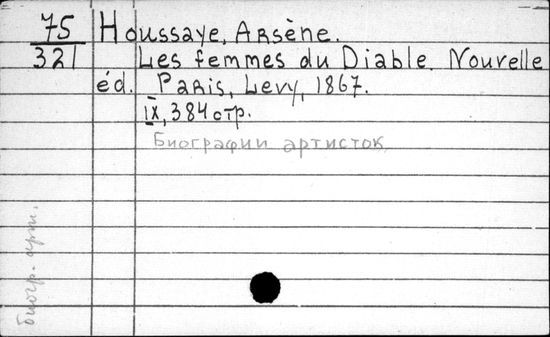 75
321
Houssaye, Arsène.
Les femmes du Diable. Nouvelle
éd. Paris, Levy, 1867.
IX, 384 стр.
Биографии артисток
биогр. арт.